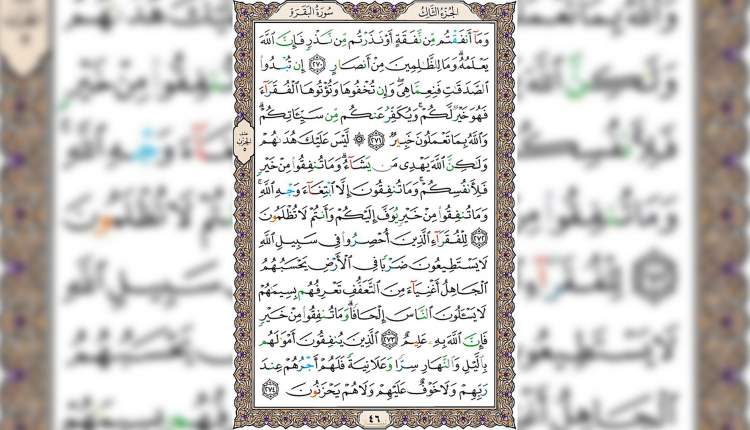 الجزء الثالث
سورة البقرة
وَمَآ أَنفَقْتُم مِّن نَّفَقَةٍ أَوْ نَذَرْتُم مِّن نَّذْرٍ فَإِنَّ ٱللَّهَ
يَعْلَمُهُۥ ۗ وَمَا لِلظَّٰلِمِينَ مِنْ أَنصَارٍ ﴿٢٧٠﴾ إِن تُبْدُوا۟
ٱلصَّدَقَٰتِ فَنِعِمَّا هِىَ ۖ وَإِن تُخْفُوهَا وَتُؤْتُوهَا ٱلْفُقَرَآءَ
فَهُوَ خَيْرٌ لَّكُمْ ۚ وَيُكَفِّرُ عَنكُم مِّن سَيِّـَٔاتِكُمْ ۗ
وَٱللَّهُ بِمَا تَعْمَلُونَ خَبِيرٌ ﴿٢٧١﴾ ۞ لَّيْسَ عَلَيْكَ هُدَىٰهُمْ
وَلَٰكِنَّ ٱللَّهَ يَهْدِى مَن يَشَآءُ ۗ وَمَا تُنفِقُوا۟ مِنْ خَيْرٍ
فَلِأَنفُسِكُمْ ۚ وَمَا تُنفِقُونَ إِلَّا ٱبْتِغَآءَ وَجْهِ ٱللَّهِ ۚ
وَمَا تُنفِقُوا۟ مِنْ خَيْرٍ يُوَفَّ إِلَيْكُمْ وَأَنتُمْ لَا تُظْلَمُونَ
﴿٢٧٢﴾ لِلْفُقَرَآءِ ٱلَّذِينَ أُحْصِرُوا۟ فِى سَبِيلِ ٱللَّهِ
لَا يَسْتَطِيعُونَ ضَرْبًا فِى ٱلْأَرْضِ يَحْسَبُهُمُ
ٱلْجَاهِلُ أَغْنِيَآءَ مِنَ ٱلتَّعَفُّفِ تَعْرِفُهُم بِسِيمَٰهُمْ
لَا يَسْـَٔلُونَ ٱلنَّاسَ إِلْحَافًا ۗ وَمَا تُنفِقُوا۟ مِنْ خَيْرٍ
فَإِنَّ ٱللَّهَ بِهِۦ عَلِيمٌ ﴿٢٧٣﴾ ٱلَّذِينَ يُنفِقُونَ أَمْوَٰلَهُم
بِٱلَّيْلِ وَٱلنَّهَارِ سِرًّا وَعَلَانِيَةً فَلَهُمْ أَجْرُهُمْ عِندَ
رَبِّهِمْ وَلَا خَوْفٌ عَلَيْهِمْ وَلَا هُمْ يَحْزَنُونَ ﴿٢٧٤﴾
٤٦